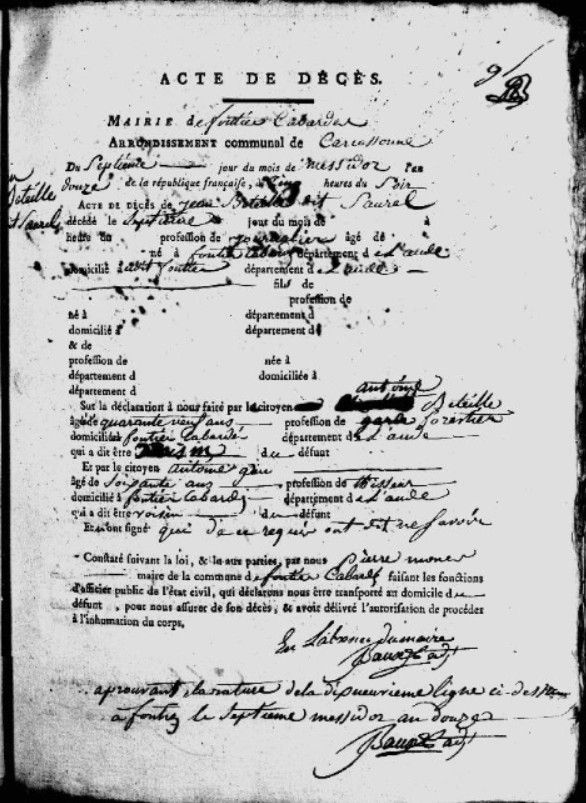 ACTE DE DÉCÈS.
MAIRIE de fontier Cabardes
ARRONDISSEMENT communal de Carcassonne
Du Septieme jour du mois de messidor l'an
douze de la république française, à cinq heures du Soir
Beteille
dit Saurel
ACTE DE DÉCÈS de jean Beteille dit Saurel
décédé le septieme jour du mois de à
heure du profession de journalier âgé de
né à fontier Cabardes département d e L'aude
domicilié à dit fontier département d e L'aude
fils de
profession de
né à département d
domicilié à département d
& de
profession de née à
département d domiciliée à
département d
antoine
Sur la déclaration à nous faite par le citoyen Beteille
âgé de quarante neuf ans profession de garde forestier
domicilié à fontier Cabardé département d e L'aude
qui a dit être voisin du défunt
Et par le citoyen antoine
âgé de soixante ans profession de tisseur
domicilié à fontier Cabardes département d e L'aude
qui a dit être voisin du défunt
Et ont signé qui de ce requis ont dit ne savoir
Constaté suivant la loi, & lu aux parties, par nous pierre
maire de la commune de fontier Cabardes faisant les fonctions
d'officier public de l'état civil, qui déclarons nous être transporté au domicile du
défunt, pour nous assurer de son décès, & avoir délivré l'autorisation de procéder
à l'inhumation du corps.
En L'absence du maire
adjt
aprouvant la rature de la dixneuvieme ligne ci-dessus
a fontier le septieme messidor an douze
adjt